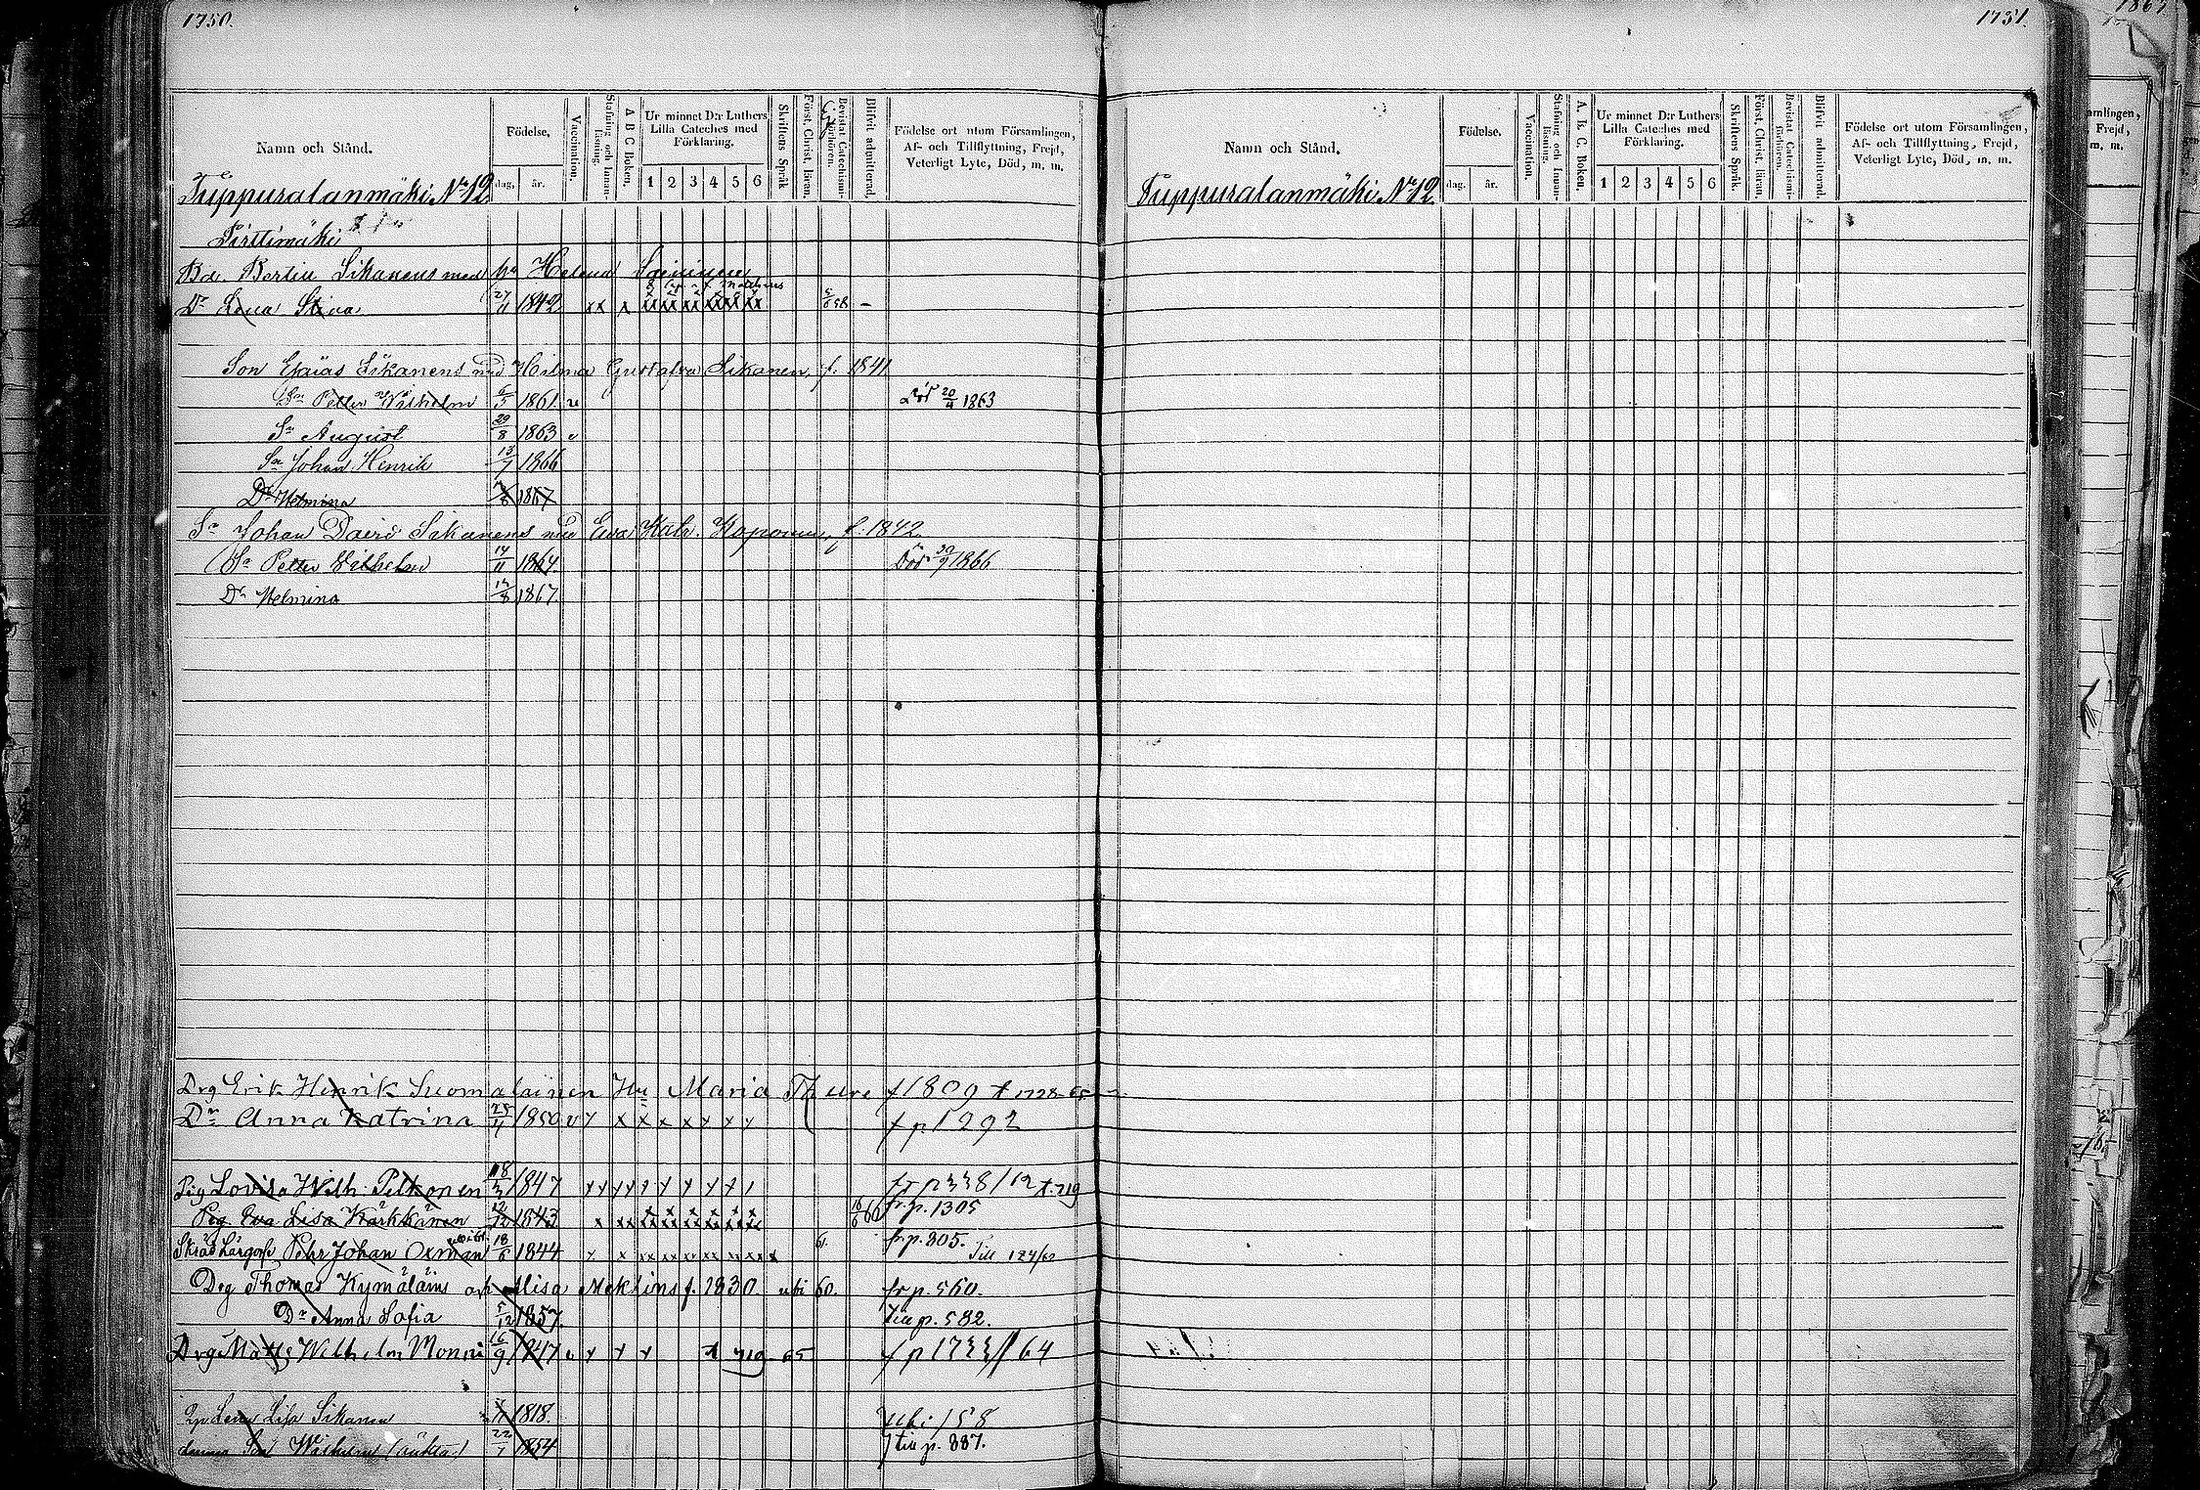 1750.
Namn och Stånd.
Födelse,
dag,
år.
Vaccination.
Stafning och Innan-läsning.
A B C Boken.
Ur minnet D:r Luthers Lilla Cateches med Förklaring.
1 2 3 4 5 6
Skriftens Språk
Först. Christ. läran.
Bevistat Catechismi-förhören.
Blifvit admitterad.
Födelse ort utom Församlingen,
Af- och Tillflyttning, Frejd,
Veterligt Lyte, Död, m. m.
Tuppuralanmäki No 12
Pirttimäki
Bertin Sikanens med Helena
Dr Lena Stina 27/11 1842 xx x 58 -
Son Esaias Sikanens med Hilma Gustafva Sikanen, f. 1841
Sn Petter Wilhelm 1861 död 20/4 1863
Sn August 29/8 1863 v
Sn Johan Henrik 13/7 1866
Dr Helmina 1867
Sn Johan David Sikanens Eva Katr. Koponen, f. 1842.
(Sn Petter Vilhelm 14/11 1864 Död 29/9 1866
Dr Helmina 12/8 1867
Drg Erik Henrik Suomalainen Hu Maria Thure f 1809 t 1728 65
Dr Anna Katrina 25/4 1850 v x x x x x x x f p 1292
Pig Lovisa Wilh. Pelkonen 18/3 1847 fr p 338/12 t. 719
Pig Eva Lisa Kärkkänen 12/12 1843 16/6 66 fr. p. 1305
Pehr Johan Oxman 18/6 1844 61. fr. p. 305. Till 124/62
Drg Thomas Kymäläins Alisa Meklins f. 1830. ubi 60. fr p. 560.
Dr Anna Sofia 5/12 1857. till p. 582.
Drg Matts Wilhelm Monni 16/9 1847 v x x x t 719 65 f p 1733 // 64
Lena Lisa Sikanen 1818. ubi 158
Son Wilhelm (äkta) 22/1 1854 till p. 887.
1731.
Namn och Stånd.
Födelse.
dag.
år.
Vaccination.
Stafning och Innan-läsning.
A. B. C. Boken.
Ur minnet D:r Luthers
Lilla Cateches med
Förklaring.
1 2 3 4 5 6
Skriftens Språk
Först. Christ. läran.
Bevistat Catechismi-förhören.
Blifvit admitterad.
Födelse ort utom Församlingen,
Af- och Tillflyttning, Frejd,
Veterligt Lyte, Död, m. m.
Tuppuralanmäki No 12
amlingen,
Frejd,
m. m.